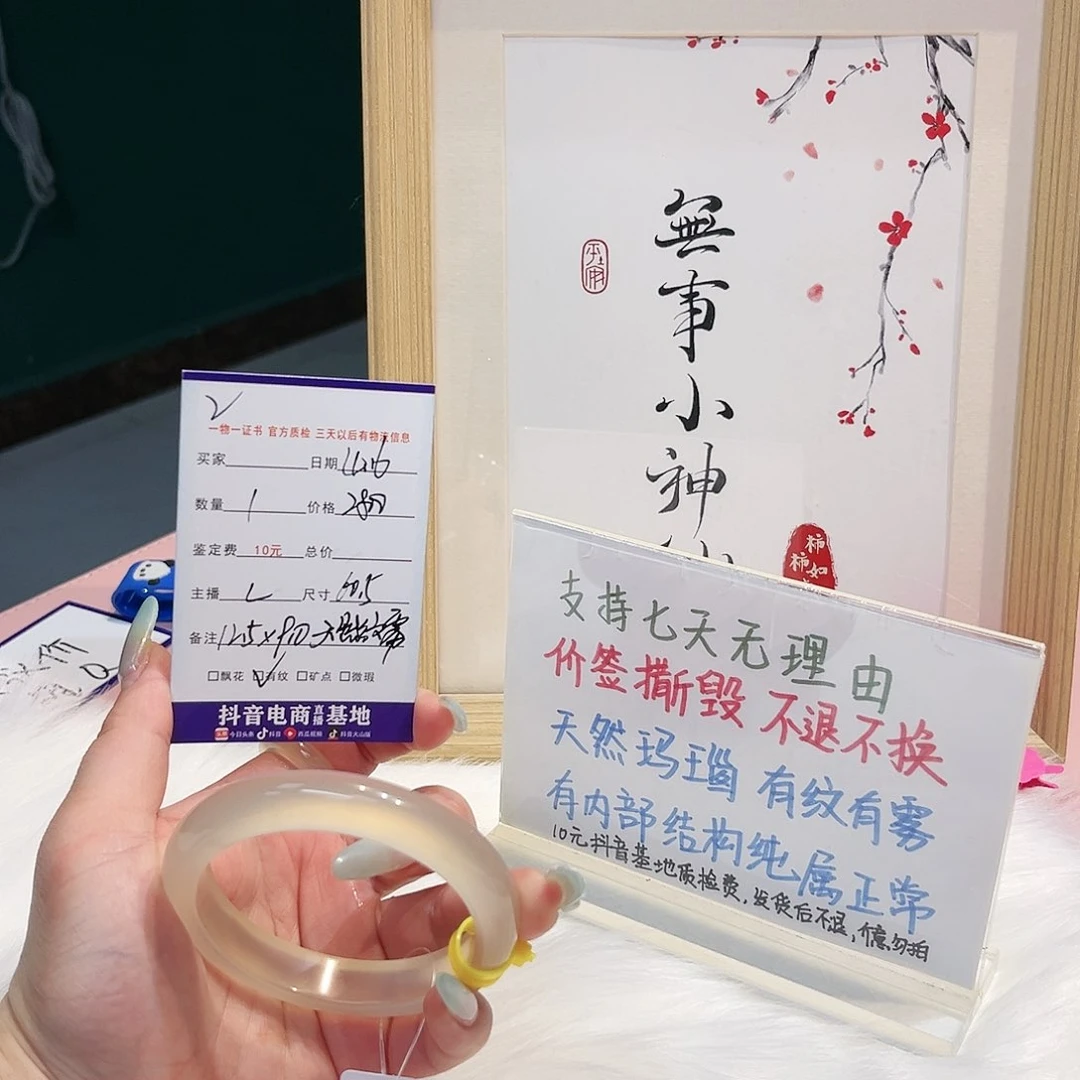 無事小神
一物一证书 官方质检 三天以后有物流信息
买家 日期 11.26
数量 1 价格 280
鉴定费 10元 总价
主播 L 尺寸 60.5
备注 12.5×9.0
□飘花 □有纹 □矿点 □微瑕
抖音电商直播基地
今日头条 抖音 西瓜视频 抖音火山版
支持七天无理由
价签撕毁 不退不换
天然玛瑙 有纹有雾
有内部结构纯属正常
10元抖音基地质检费,发货后不退,介意勿拍
柿柿如